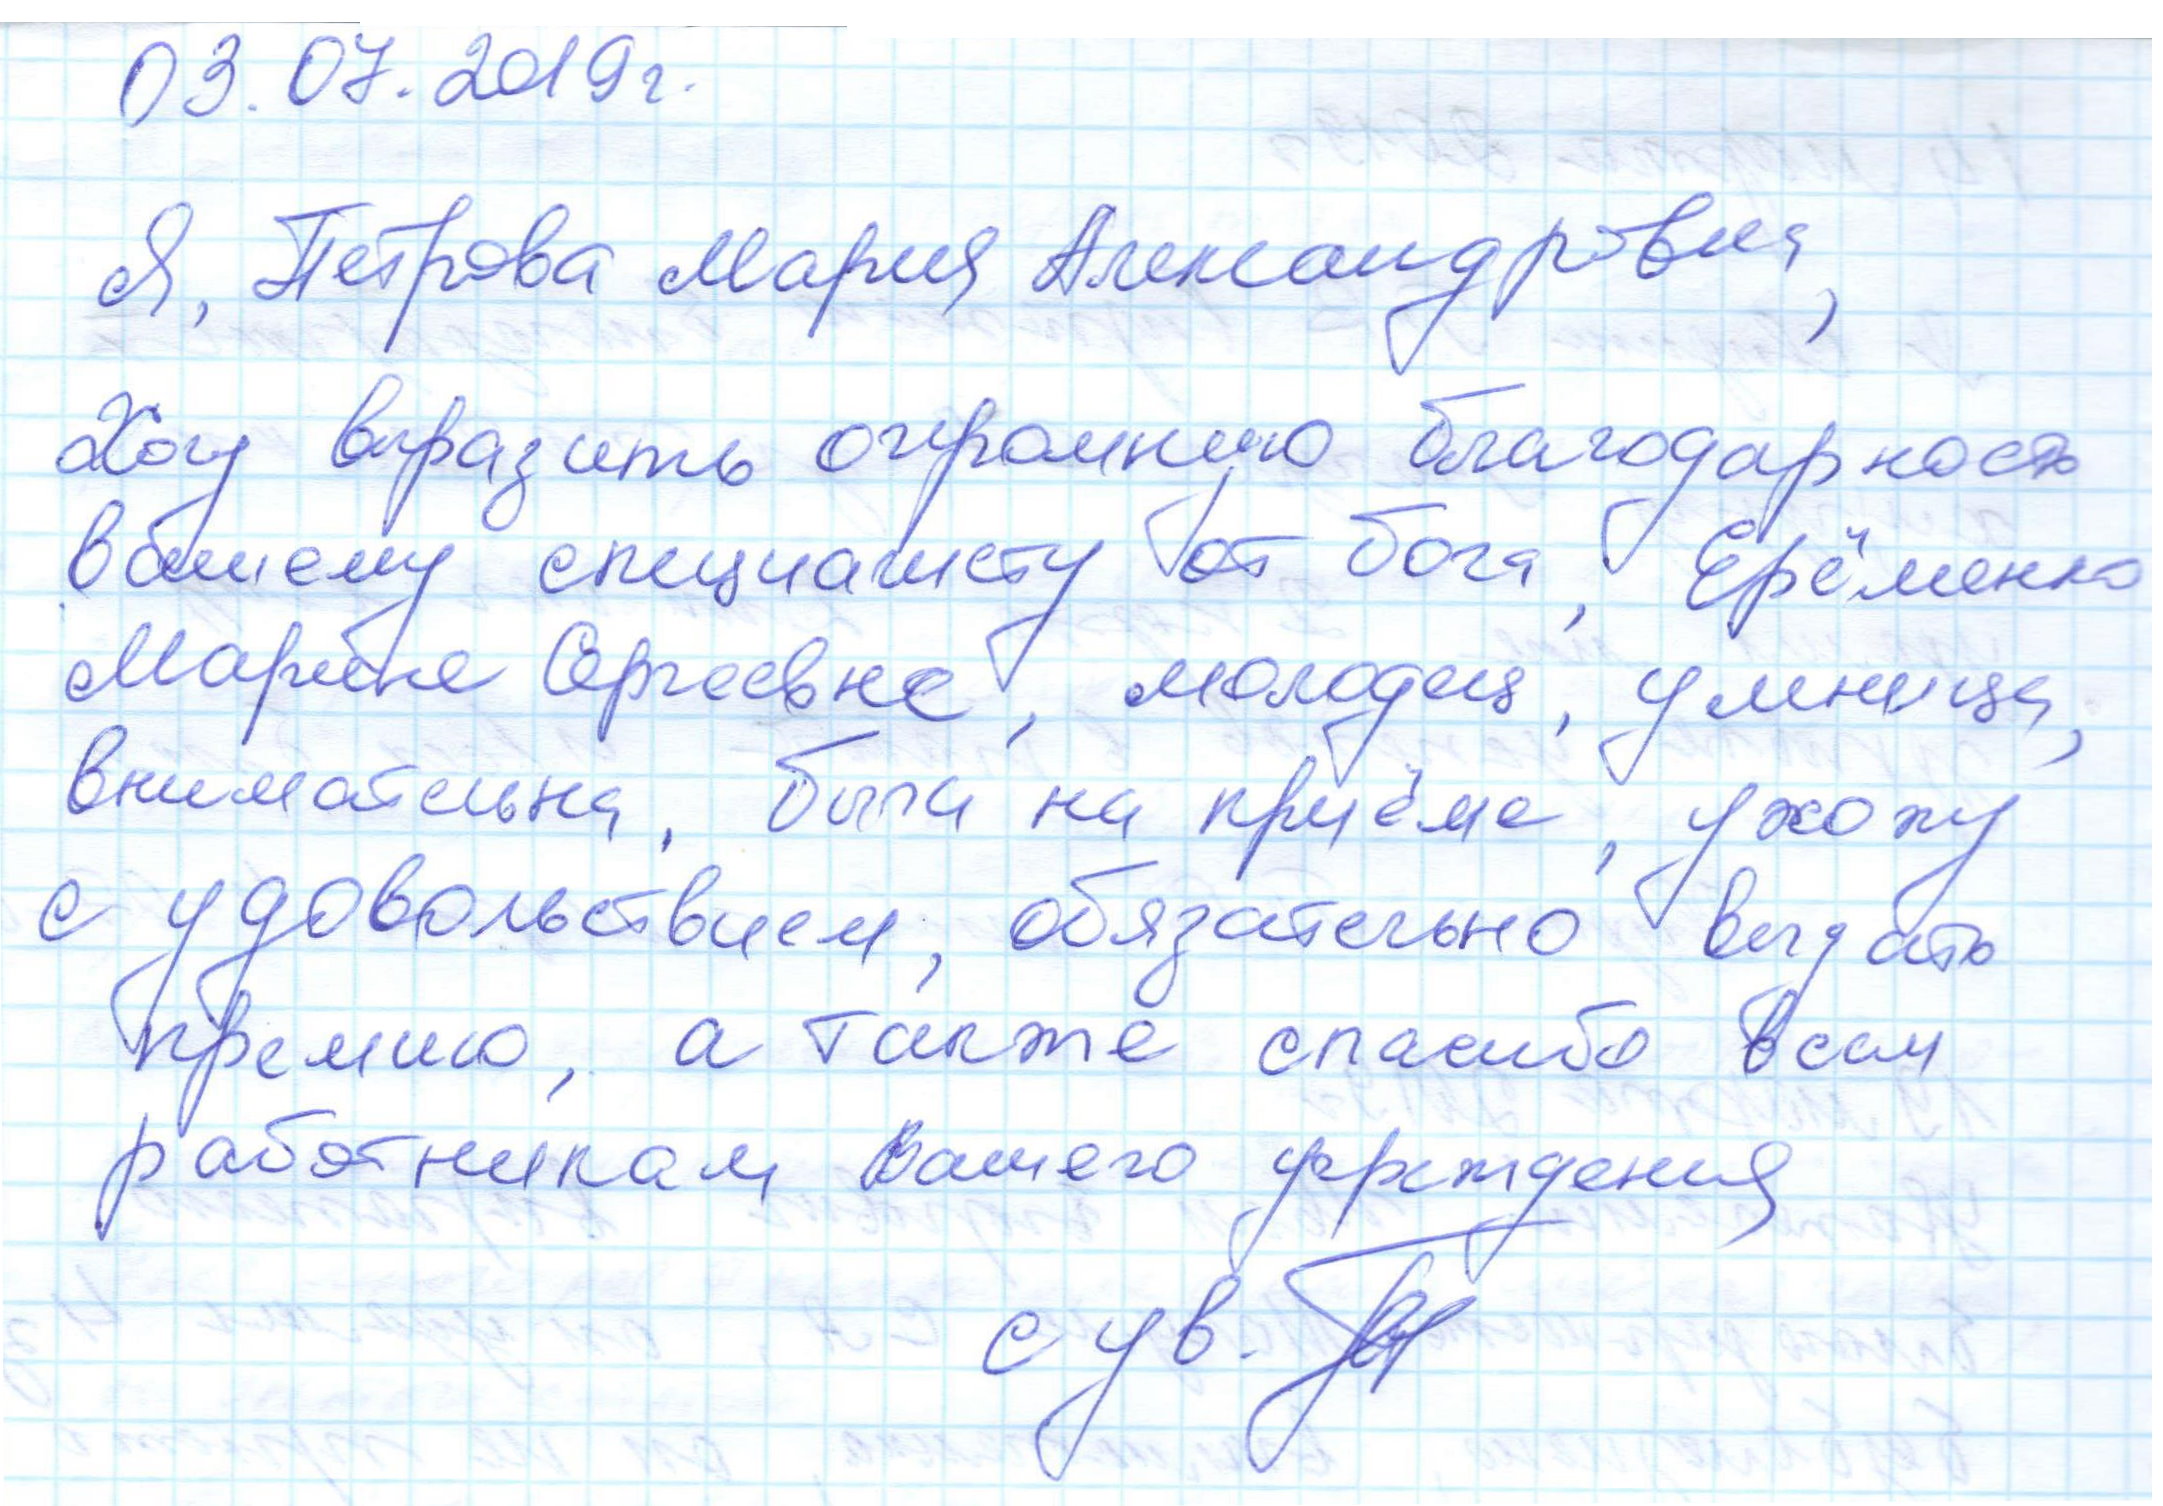 03.07.2019г.
Я, Петрова Мария Александровна,
Хочу выразить огромную благодарность
вашему специалисту от бога, Ерёменко
Марине Сергеевне, молодец, умница,
внимательна, была на приёме, ухожу
с удовольствием, обязательно выдать
премию, а также спасибо всем
работникам вашего учреждения
с ув.